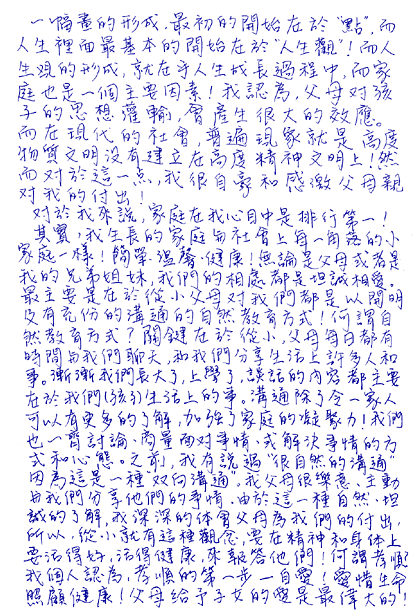 一幅畫的形成,最初的開始在於"點",而
人生裡面最基本的開始在於"人生觀"!而人
生觀的形成,就在乎人生成長過程中,而家
庭也是一個主要因素!我認為,父母對孩
子的思想灌輸,會產生很大的效應。
而在現代的社會,普遍現象就是高度
物質文明沒有建立在高度精神文明上!然
而對於這一點,我很自豪和感激父母親
對我的付出!
對於我來說,家庭在我心目中是排行第一!
其實,我生長的家庭与社會上每一角落的小
家庭一樣!簡單、溫馨、健康!無論是父母或者是
我的兄弟姐妹,我們的相處都是坦誠相愛。
最主要是在於從小父母對我們都是以開明
及有充份的溝通的自然教育方式!何謂自
然教育方式?關鍵在於從小,父母每日都有
時間与我們聊天,和我們分享生活上許多人和
事。漸漸我們長大了,上學了,談話的內容都主要
在於我們(孩子)生活上的事。溝通除了令一家人
可以有更多的了解,加強了家庭的凝聚力!我們
也一齊討論、商量面對事情、或解決事情的方
式和心態。之前,我有說過"很自然的溝通"
因為這是一種双向溝通",我父母很樂意、主動
与我們分享他們的事情。由於這一種自然、坦
誠的了解,我深深的体會父母為我們的付出,
所以,從小就有這種觀念,要在精神和身体上
要活得好,活得健康,來報答他們!何謂孝順
我個人認為,孝順的第一步—自愛!愛惜生命
照顧健康!父母給予子女的愛是最偉大的!